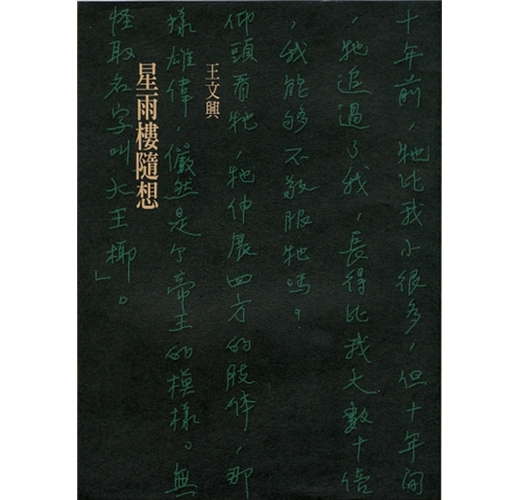 十年前，牠比我小很多，但十年间
，牠追過了我，長得比我大數十倍
，我能够不敬服牠吗？
王文興
仰頭看牠，牠伸展四方的肢体，那
樣雄偉，儼然是个帝王的模樣。無
星雨樓隨想
怪取名字叫大王椰。」